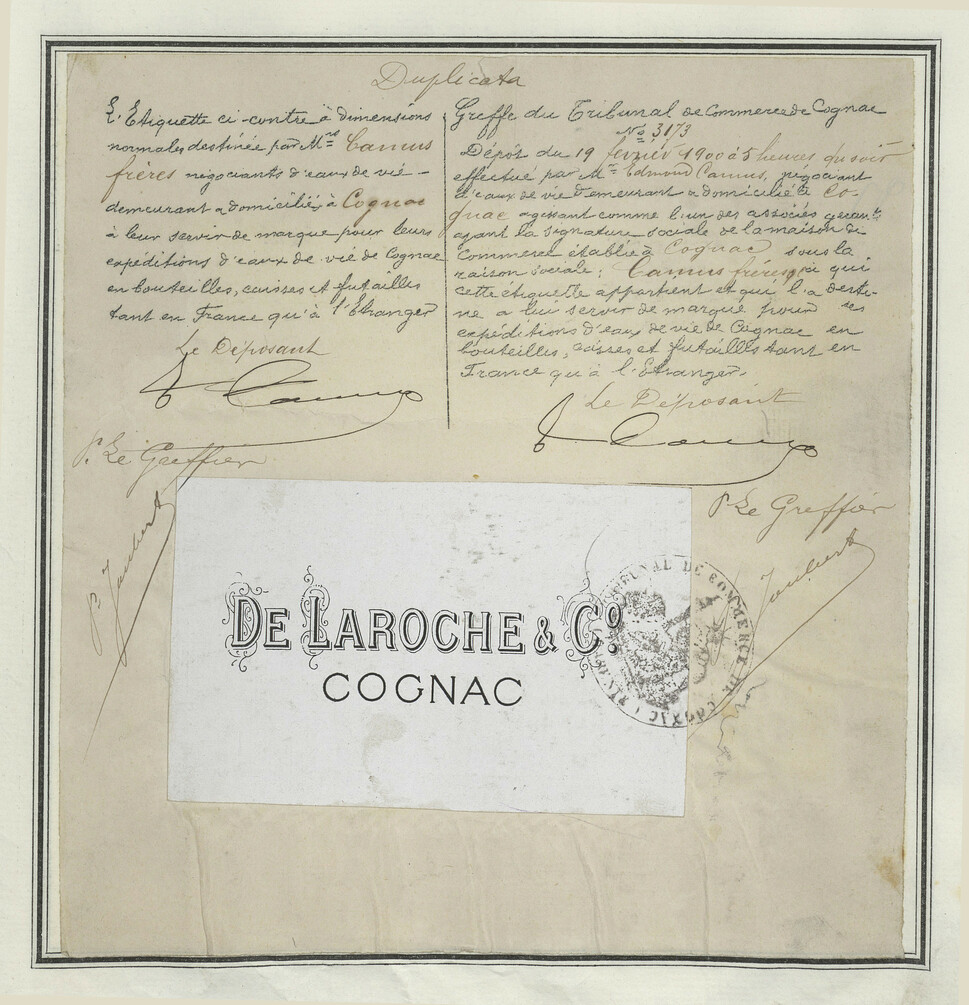 Duplicata
L'Etiquette ci-contre à dimensions
normales destinée par Mrs Camus
frères négociants d'eaux de vie -
demeurant & domiciliés à Cognac
à leur servir de marque pour leurs
expéditions d'eaux de vie de Cognac
en bouteilles, caisses et futailles
tant en France qu'à l'Etranger
Le Déposant
E. Camus
Pr Le Greffier
Joubert
Greffe du Tribunal de Commerce de Cognac
No 3173
Dépôt du 19 février 1900 à 5 heures du soir
effectué par Mr Edmond Camus, négociant
d'eaux de vie demeurant & domicilié à Co-
gnac agissant comme l'un des associés gérants
ayant la signature sociale de la maison de
Commerce établie à Cognac sous la
raison sociale: Camus frères, à qui
cette étiquette appartient et qui l'a desti-
née à lui servir de marque pour ses
expéditions d'eaux de vie de Cognac en
bouteilles, caisses et futailles tant en
France qu'à l'Etranger.
Le Déposant
E. Camus
Pr Le Greffier
Joubert
DE LAROCHE & Co.
COGNAC
TRIBUNAL DE COMMERCE DE COGNAC